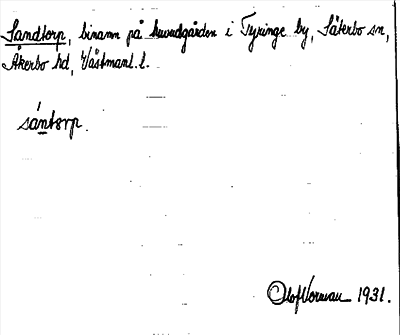 Sandtorp, binamn på huvudgården i Tyringe by, Säterbo sn,
Åkerbo hd, Västmanl. l.
sántorp.
Olof Vorman 1931.